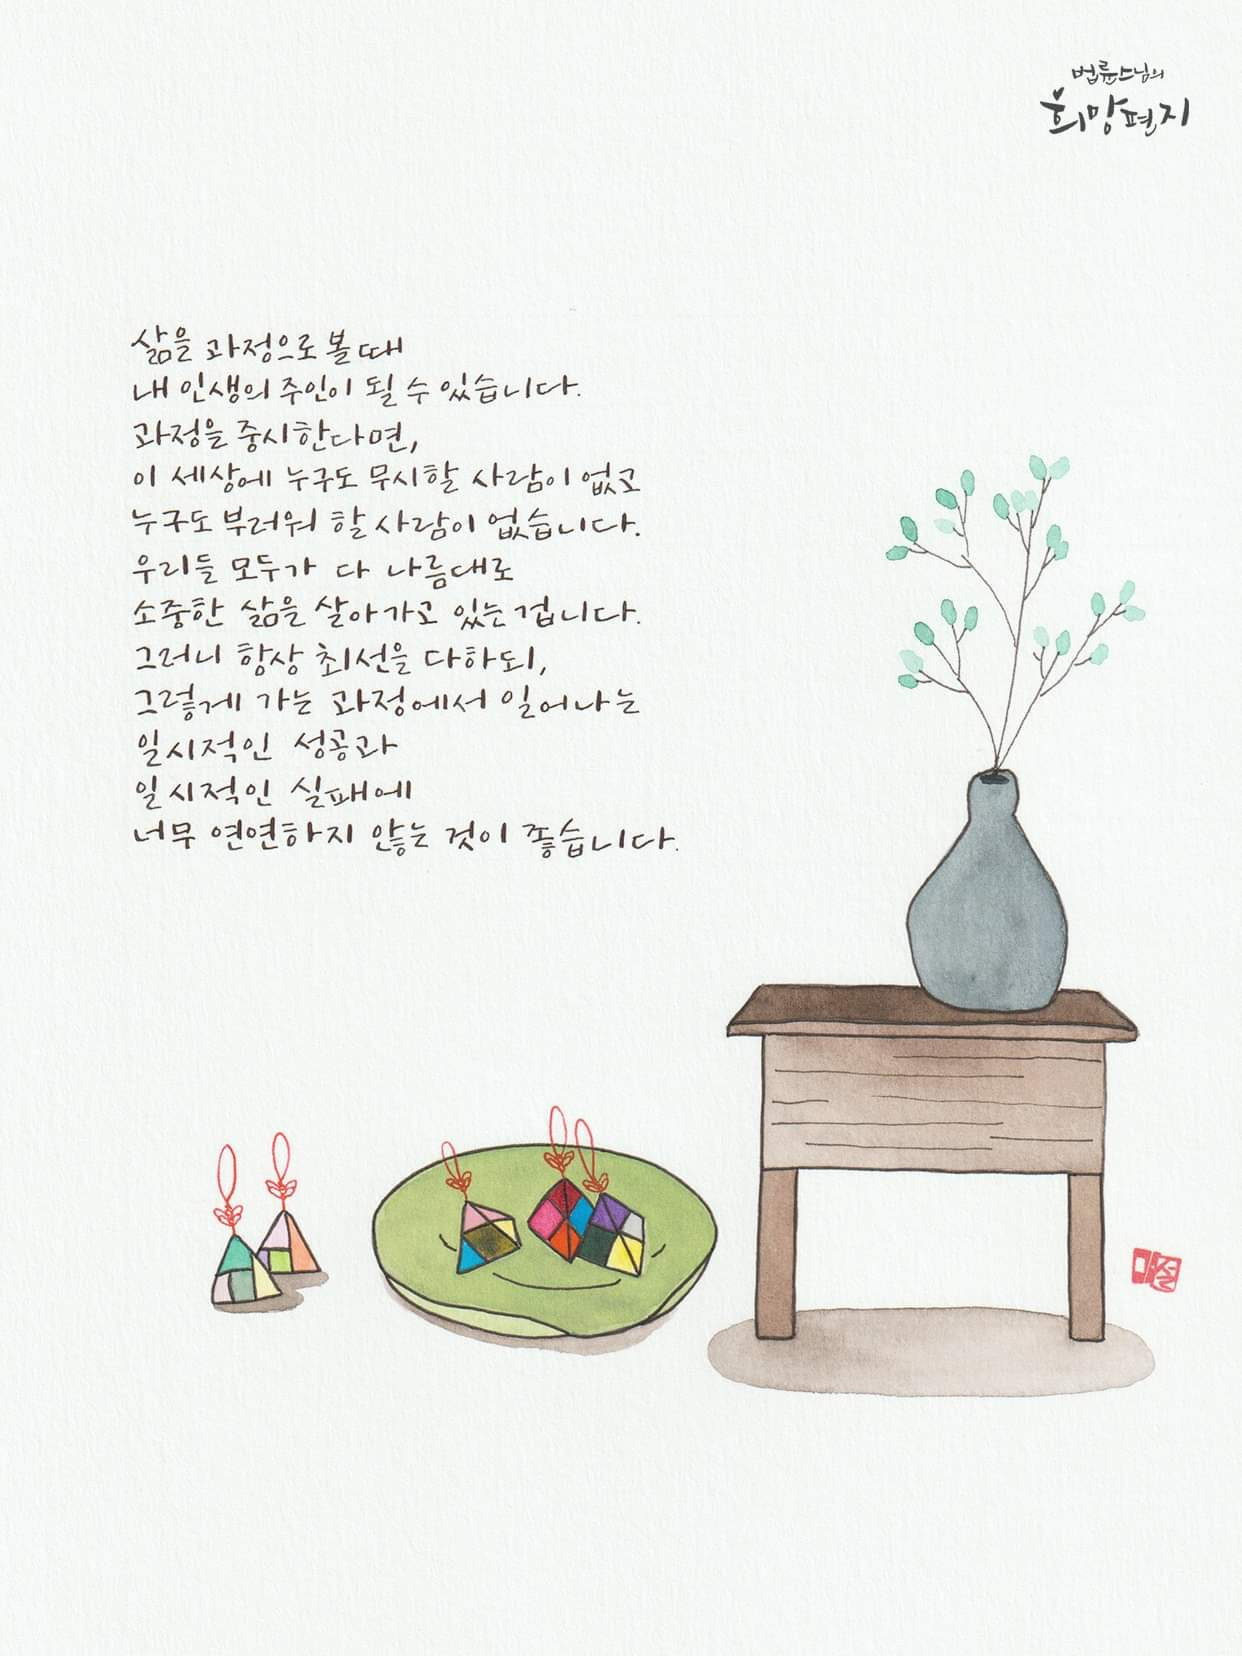 법륜스님의
희망편지
삶을 과정으로 볼 때
내 인생의 주인이 될 수 있습니다.
과정을 중시한다면,
이 세상에 누구도 무시할 사람이 없고
누구도 부러워 할 사람이 없습니다.
우리들 모두가 다 나름대로
소중한 삶을 살아가고 있는 겁니다.
그러니 항상 최선을 다하되,
그렇게 가는 과정에서 일어나는
일시적인 성공과
일시적인 실패에
너무 연연하지 않는 것이 좋습니다.